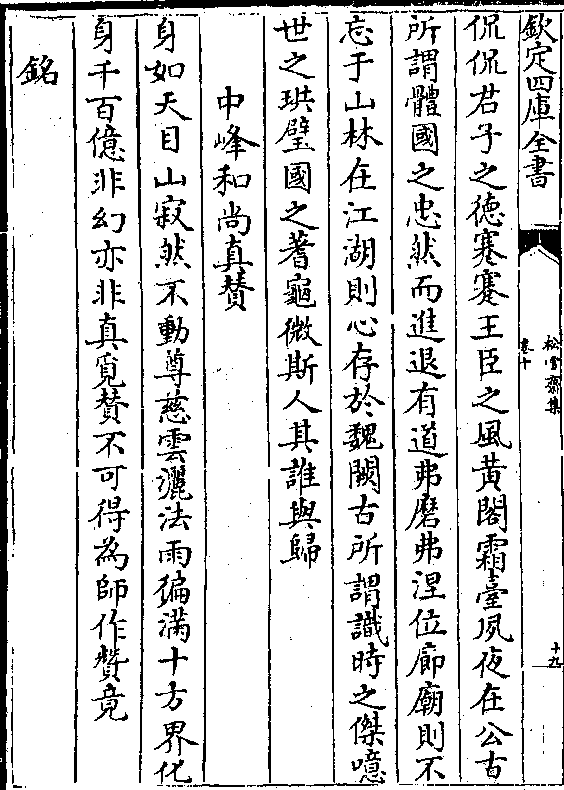 欽定四庫全書
松雪齋集
卷十
十九
侃侃君子之德蹇蹇王臣之風黄閣霜臺夙夜在公古
所謂體國之忠然而進退有道弗磨弗涅位廊廟則不
忘于山林在江湖則心存於魏闕古所謂識時之傑噫
世之珙璧國之蓍龜微斯人其誰與歸
中峰和尚真賛
身如天目山寂然不動尊慈雲灑法雨徧滿十方界化
身千百億非幻亦非真覓賛不可得為師作賛竟
銘